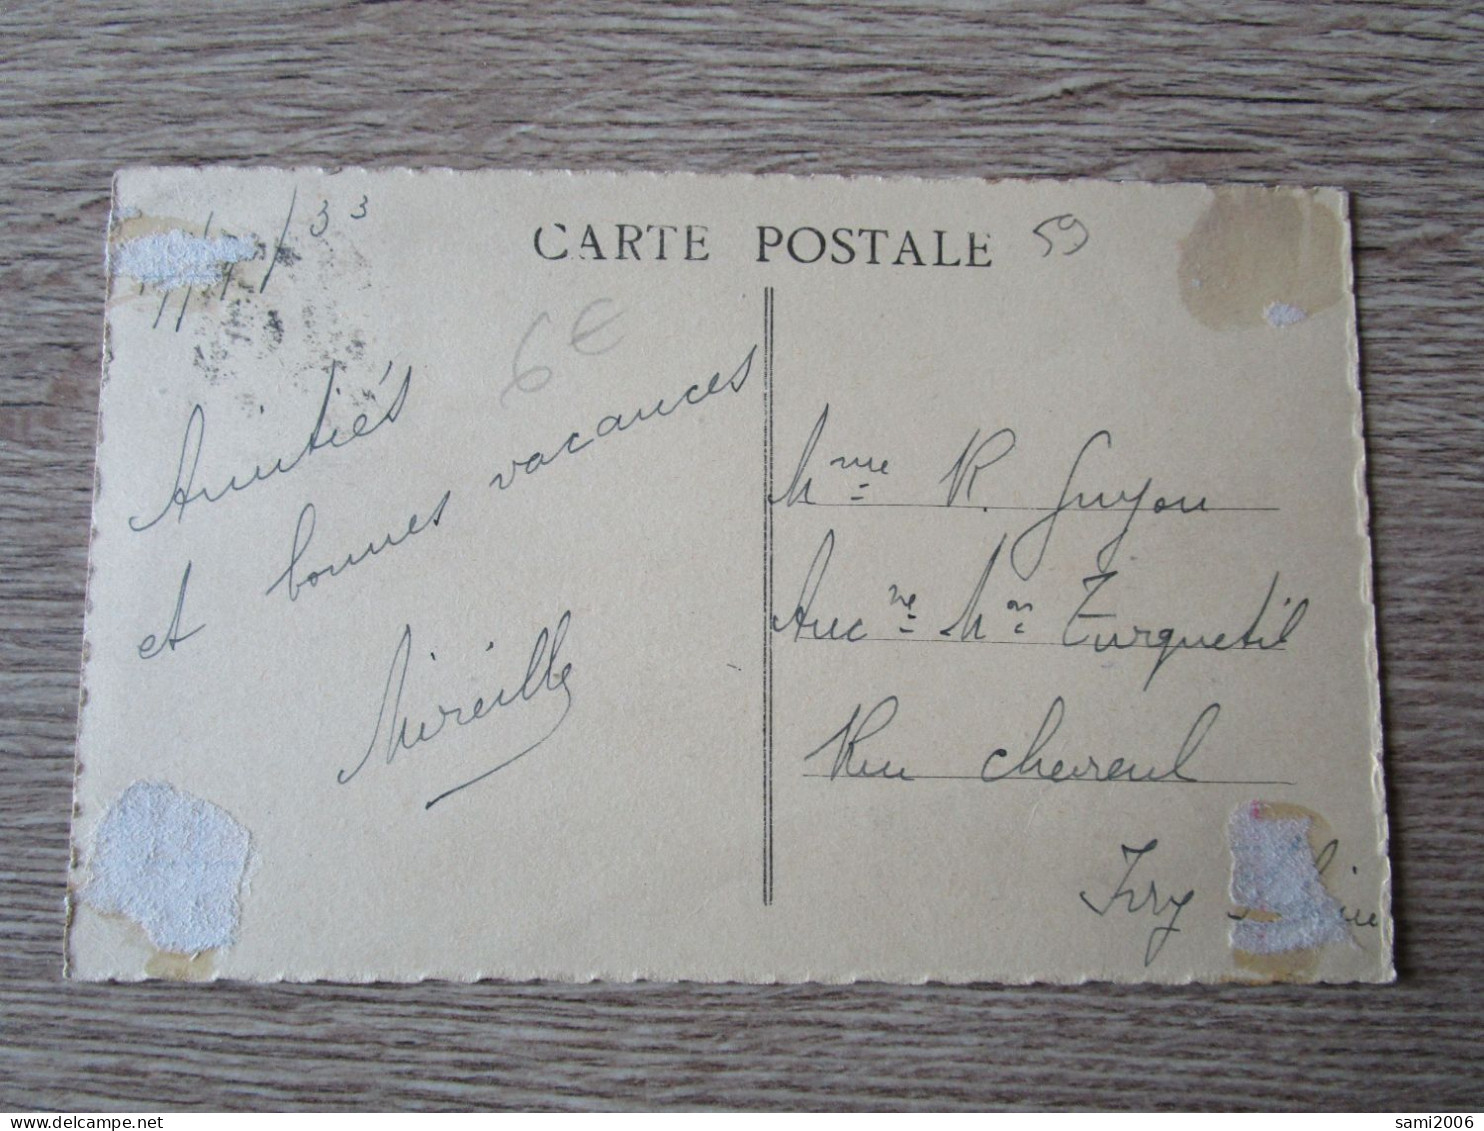 33
CARTE POSTALE
59
6€
Amitiés
et bonnes vacances
Mireille
Mme R. Guyon
Ancne Mon Turquetil
Rue Chevreul
Ivry
sami2006